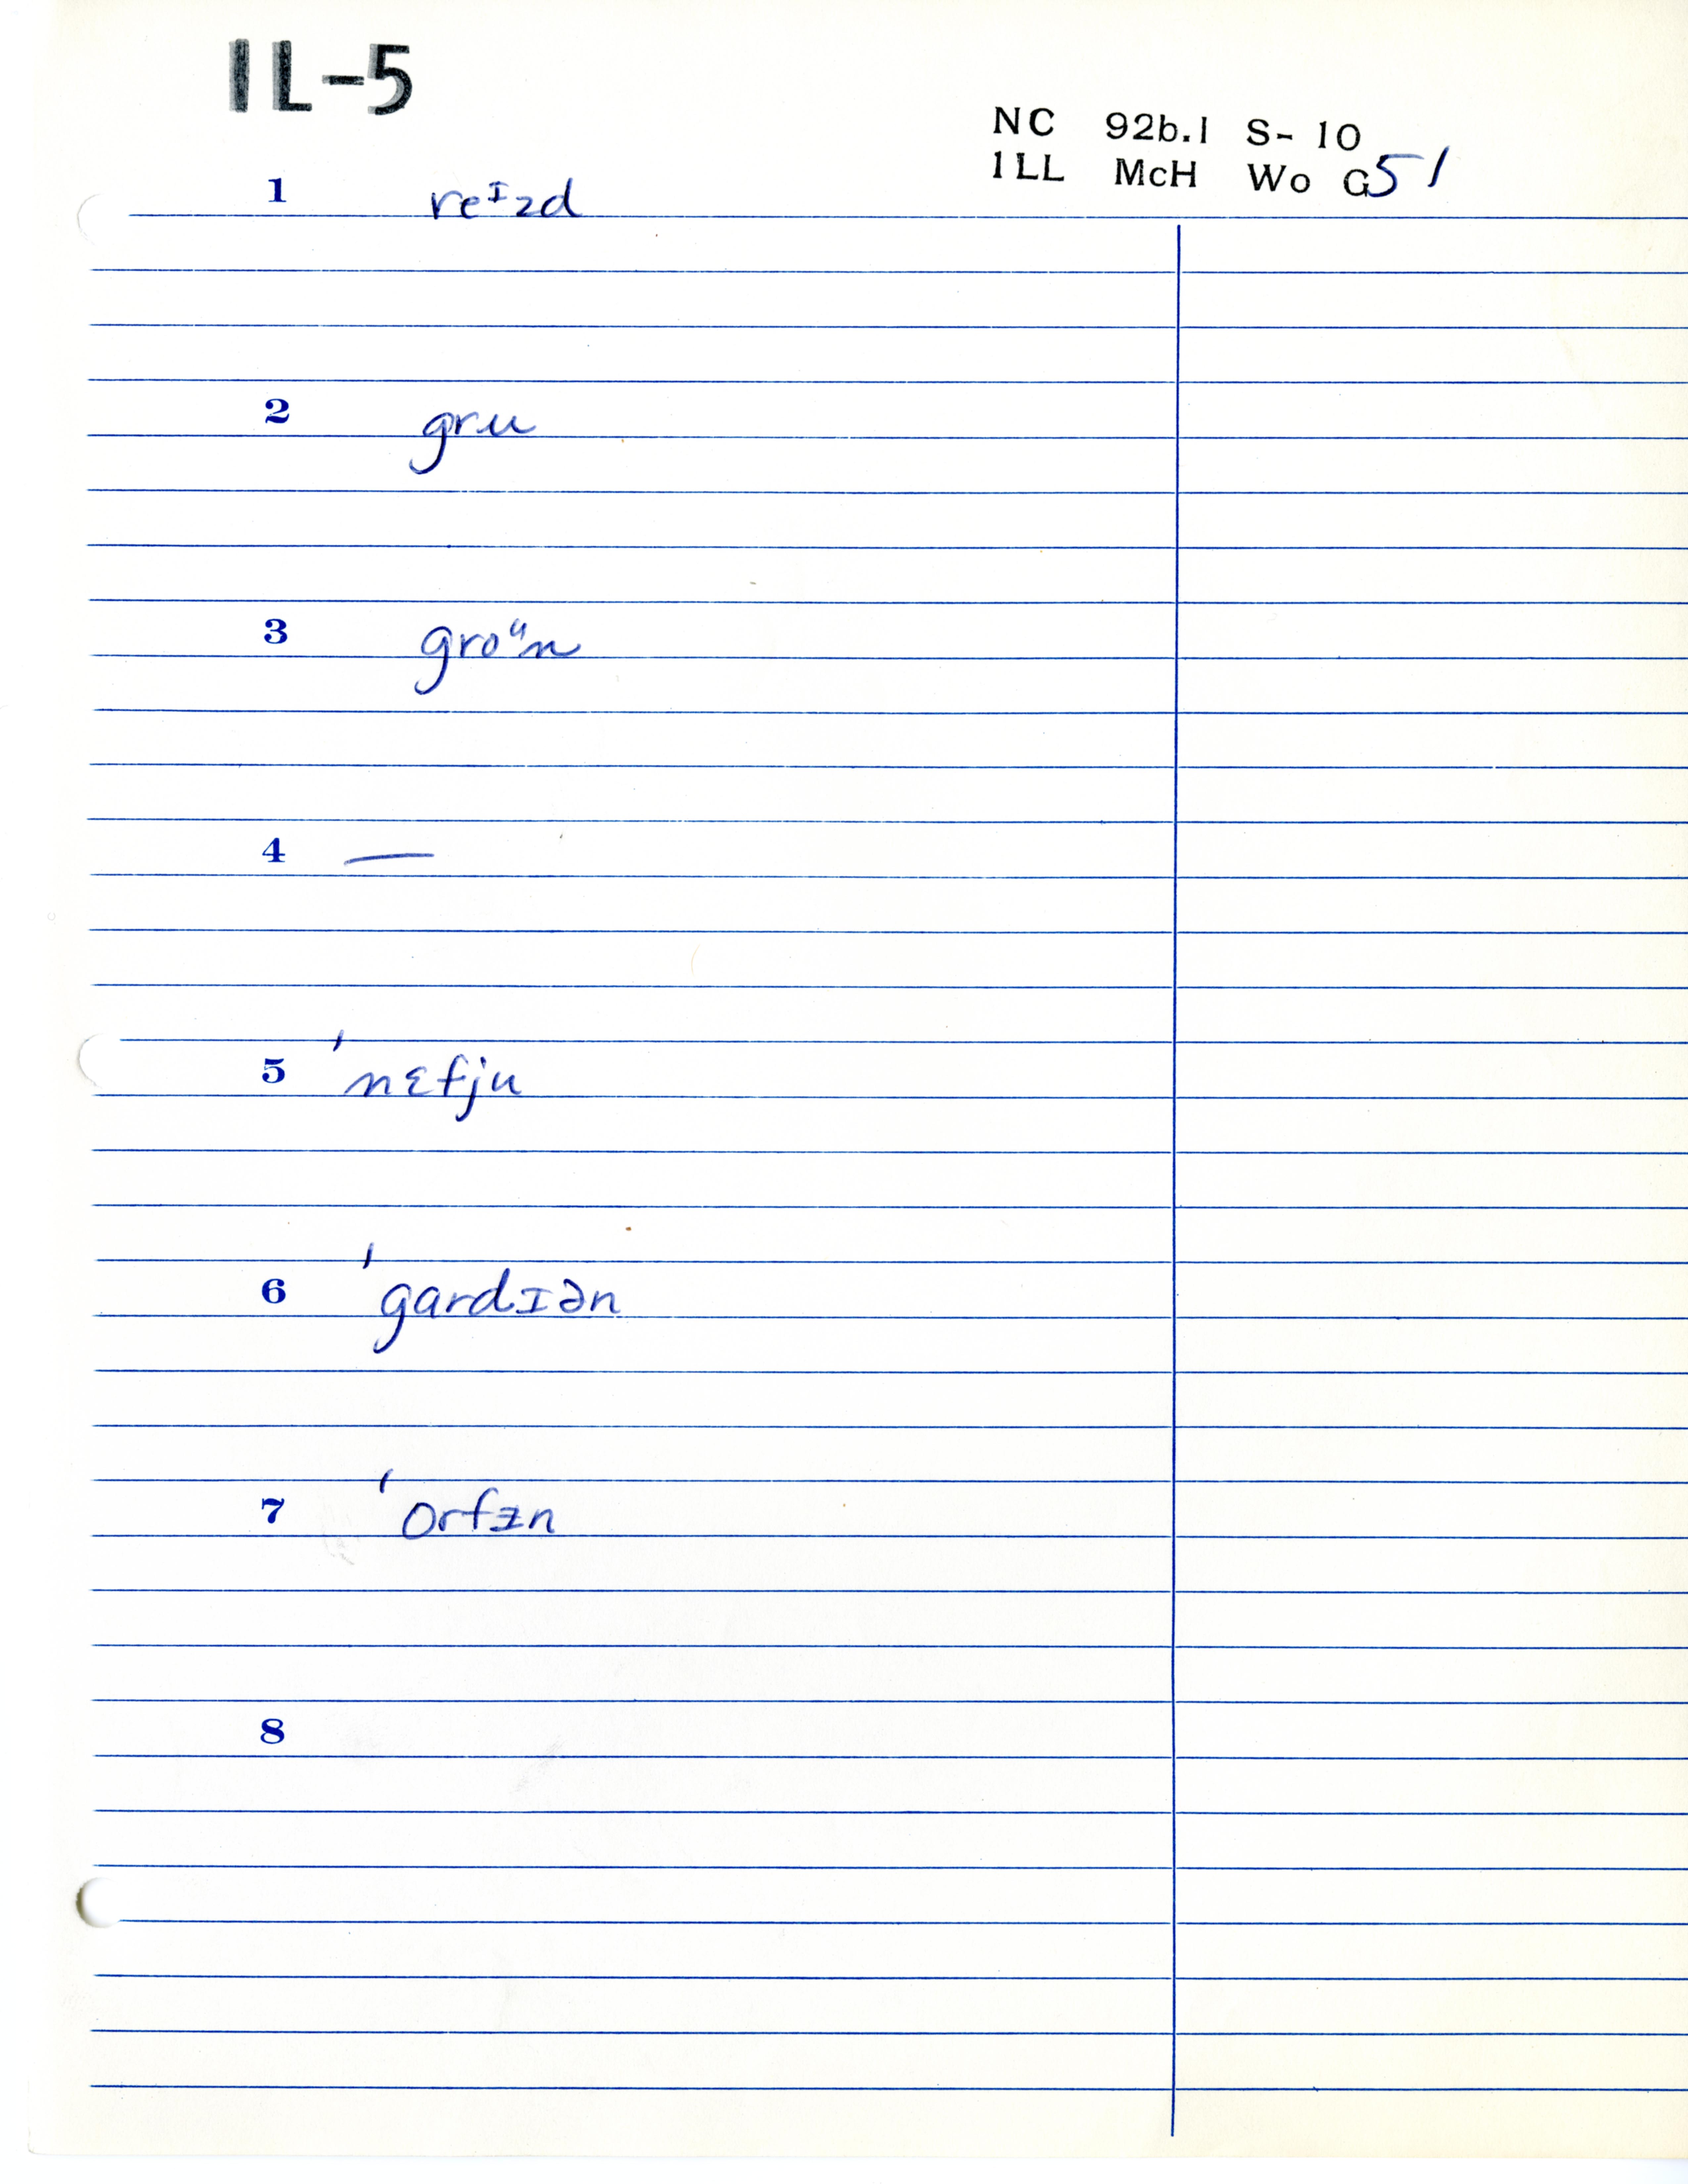 IL-5
NC 92b.1 S- 10
ILL McH Wo G51
1 reᶦzd
2 gru
3 groᵘn
4 —
5 ˈnɛfju
6 ˈgardɪən
7 ˈorfɪ̵n
8